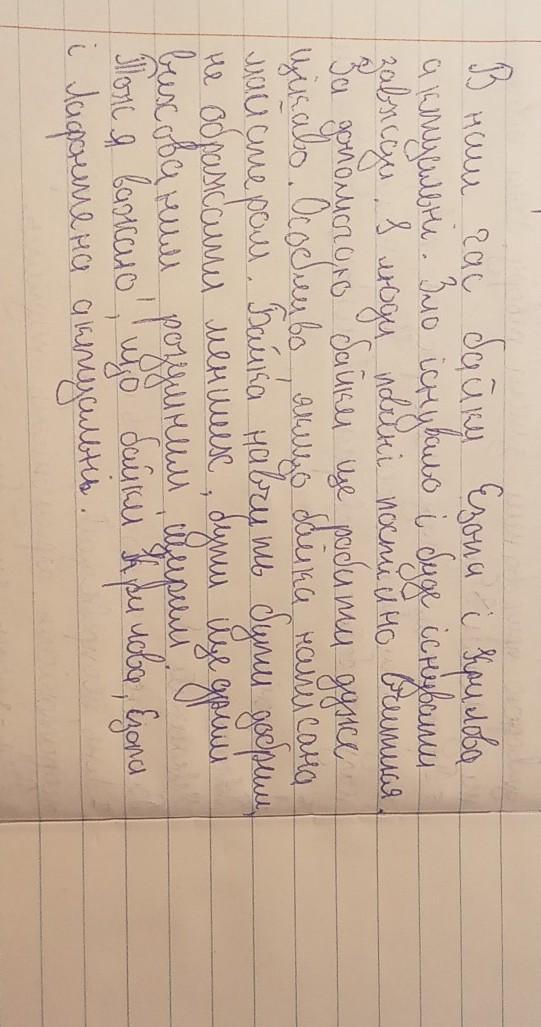 В наш час байки Езопа і Крилова
актуальні. Зло існувало і буде існувати
завжди. І люди повинні постійно вчитися.
За допомогою байки це робити дуже
цікаво. Особливо, якщо байка написана
майстером. Байка навчить бути добрим,
не ображати менших, бути щедрим
вихованим, розумним, щирим.
Тож я вважаю, що байки Крилова, Езопа
і Лафонтена актуальні.